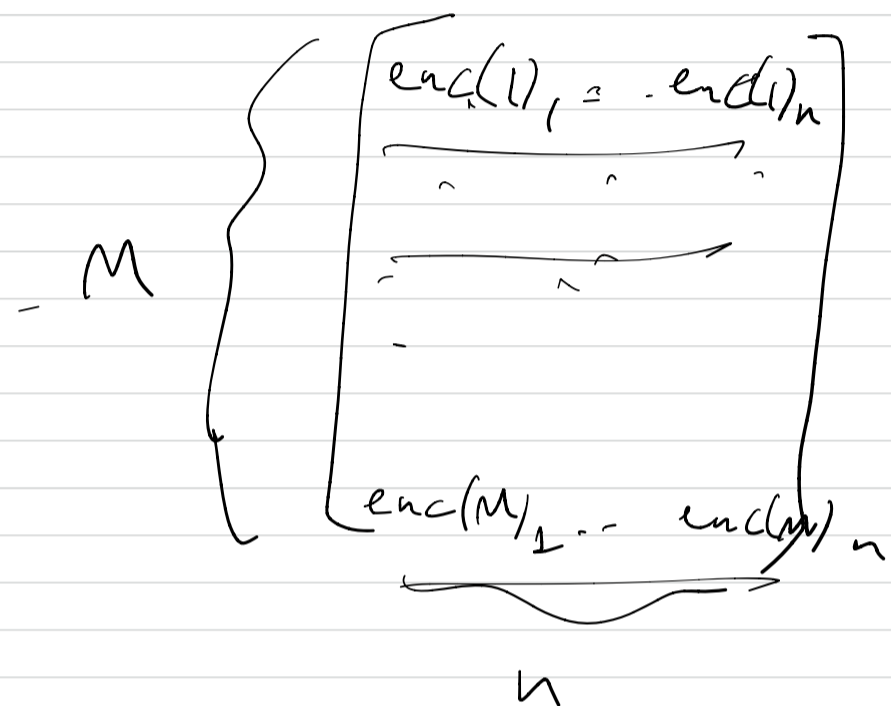 enc(1)₁ . . . enc(1)ₙ
M
enc(M)₁ . . . enc(M)ₙ
n